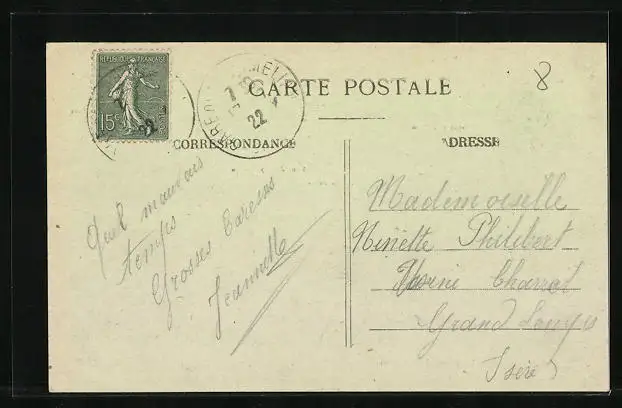 RÉPUBLIQUE FRANÇAISE
15c
22
CARTE POSTALE
8
CORRESPONDANCE
ADRESSE
Quel mauvais
temps
Grosses Caresses
Jeannette
Mademoiselle
Ninette Philibert
Usine Charrat
Grand Lemps
Isère